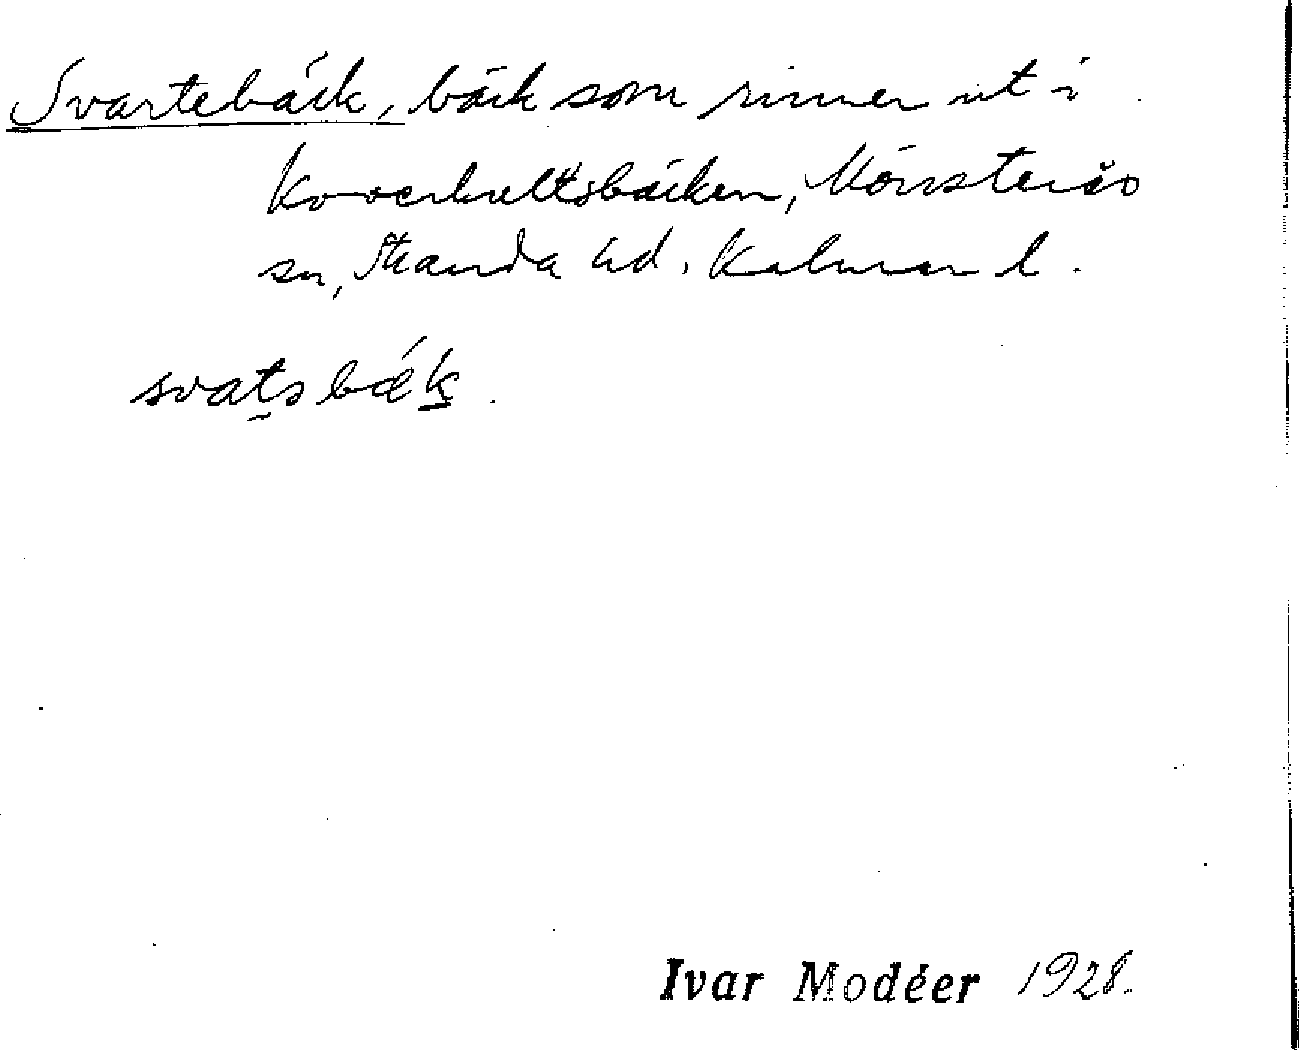 Svartebäck, bäck som rinner ut i
Mönsterås
sn, Stranda hd. Kalmar l.
svatsbæk.
Ivar Modéer 1928.